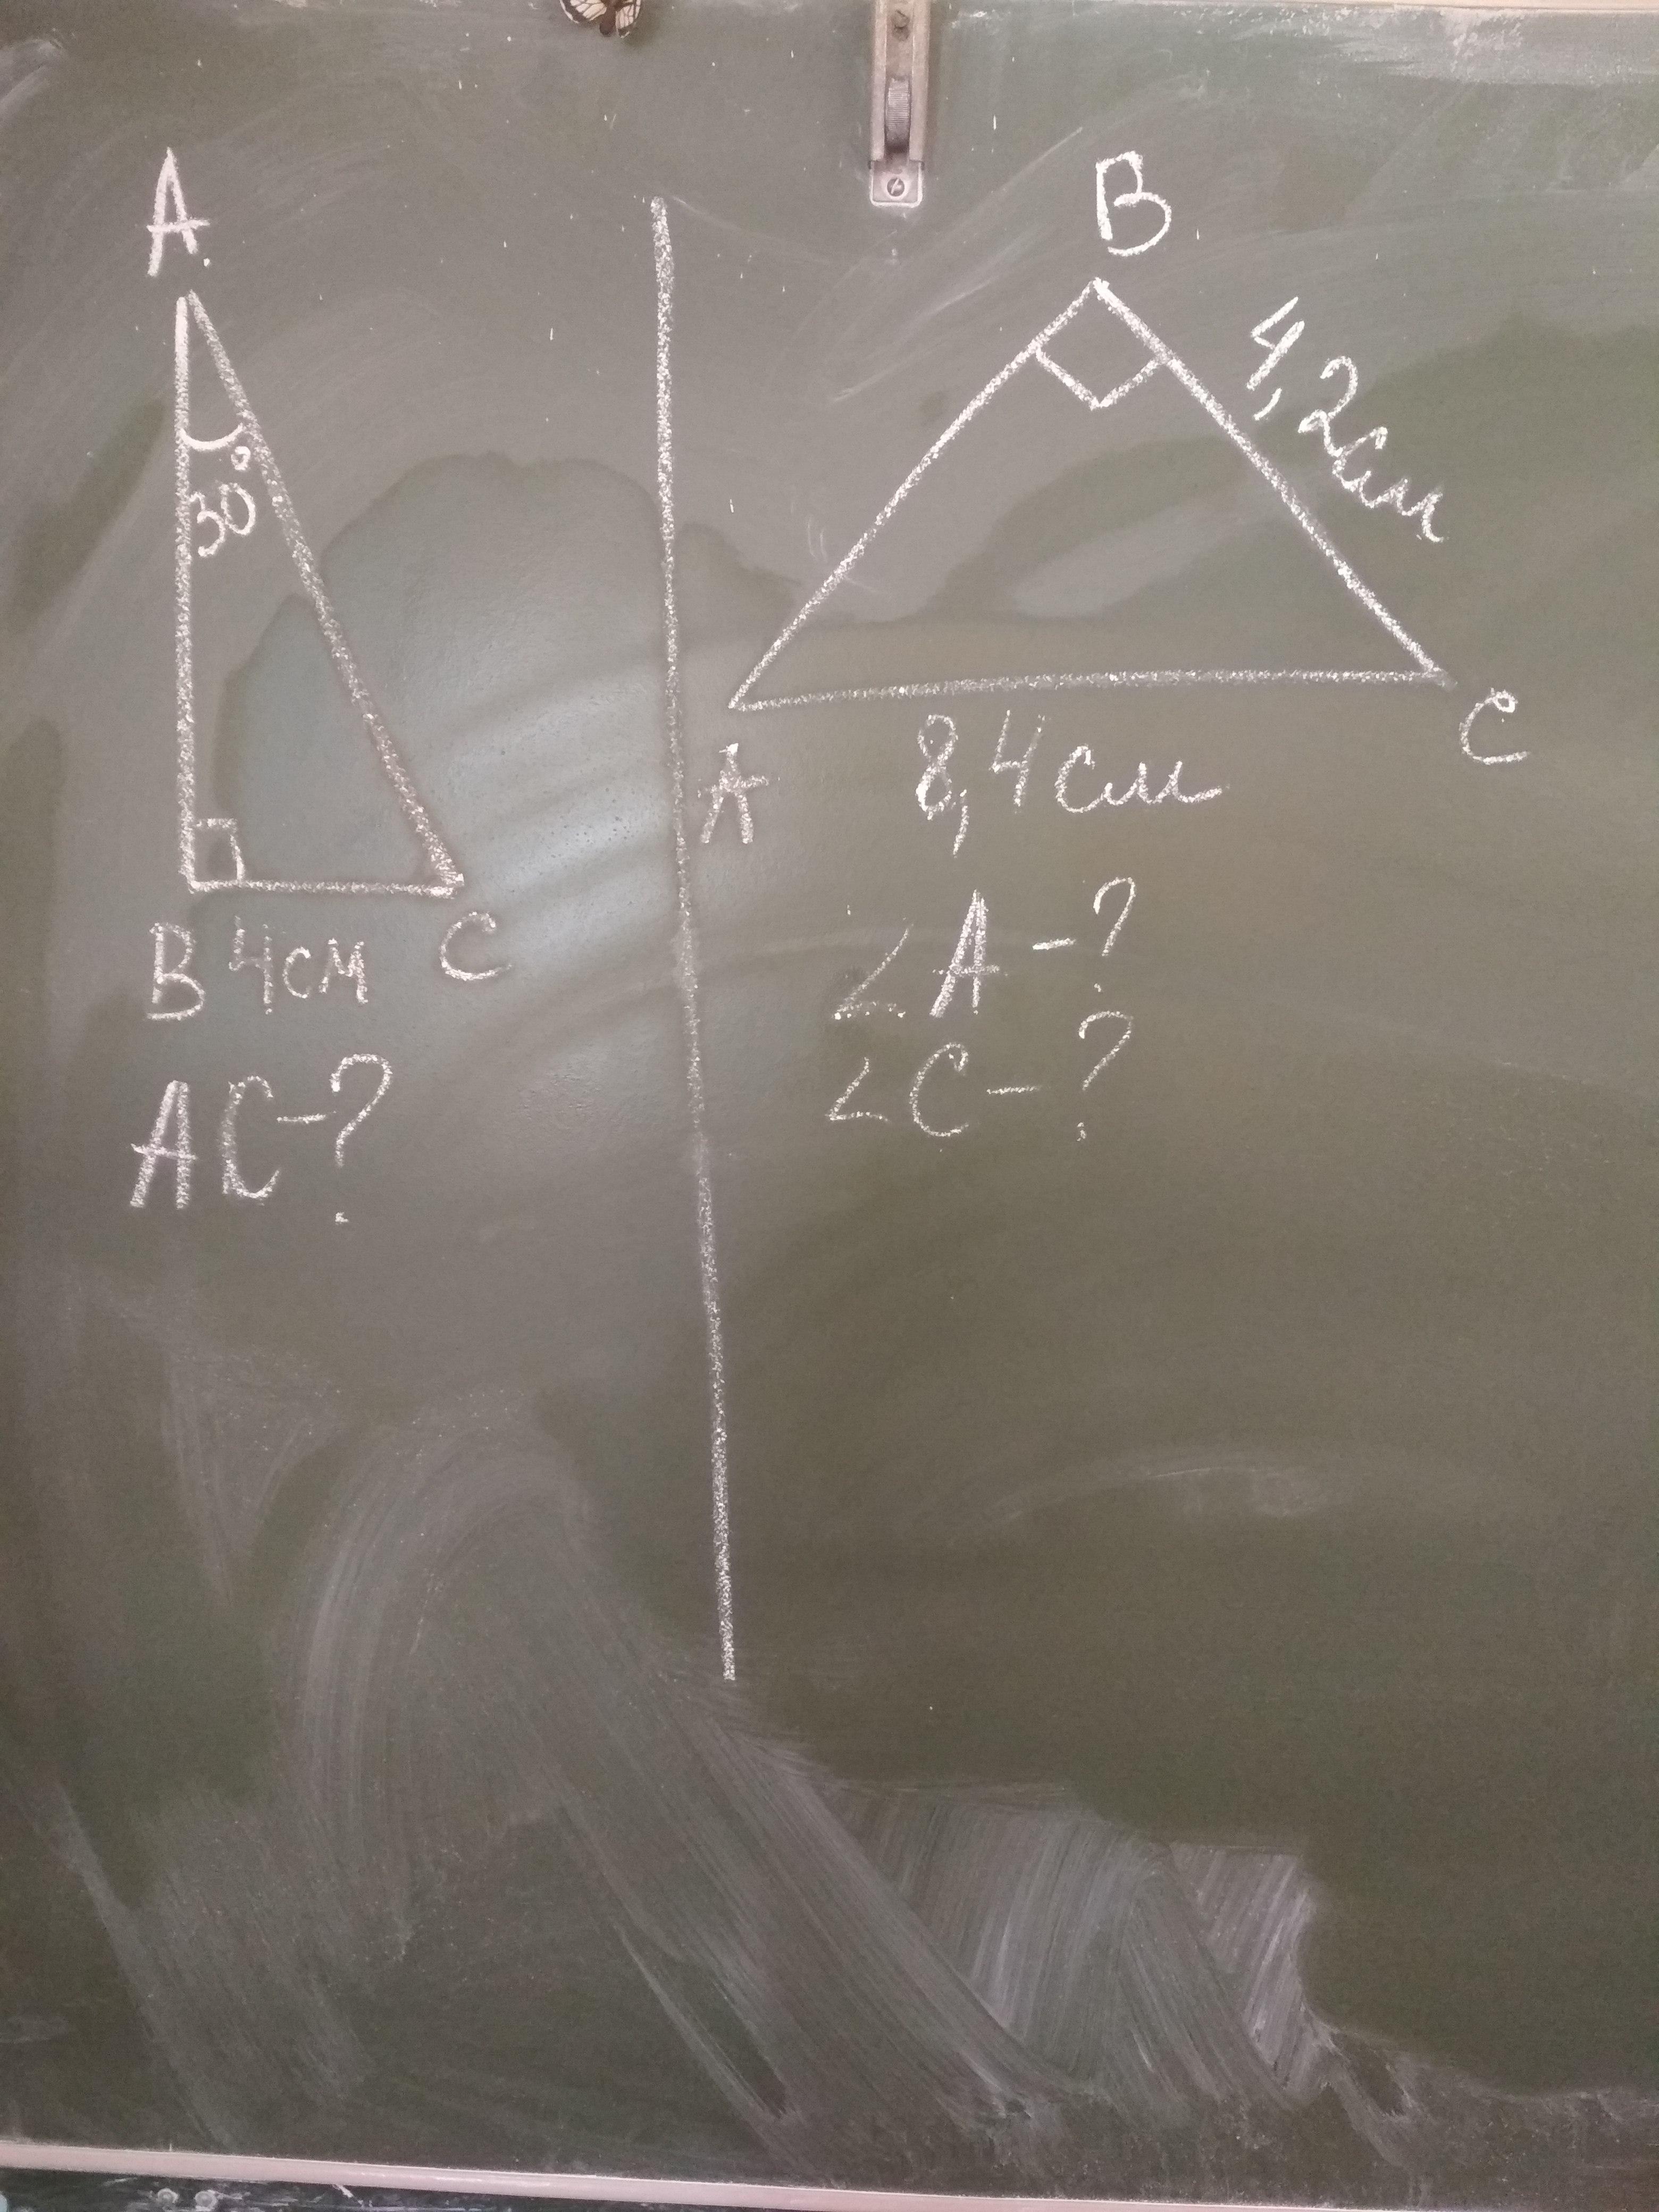 A
30°
B 4см C
AC-?
B
4,2см
A 8,4см C
∠A-?
∠C-?